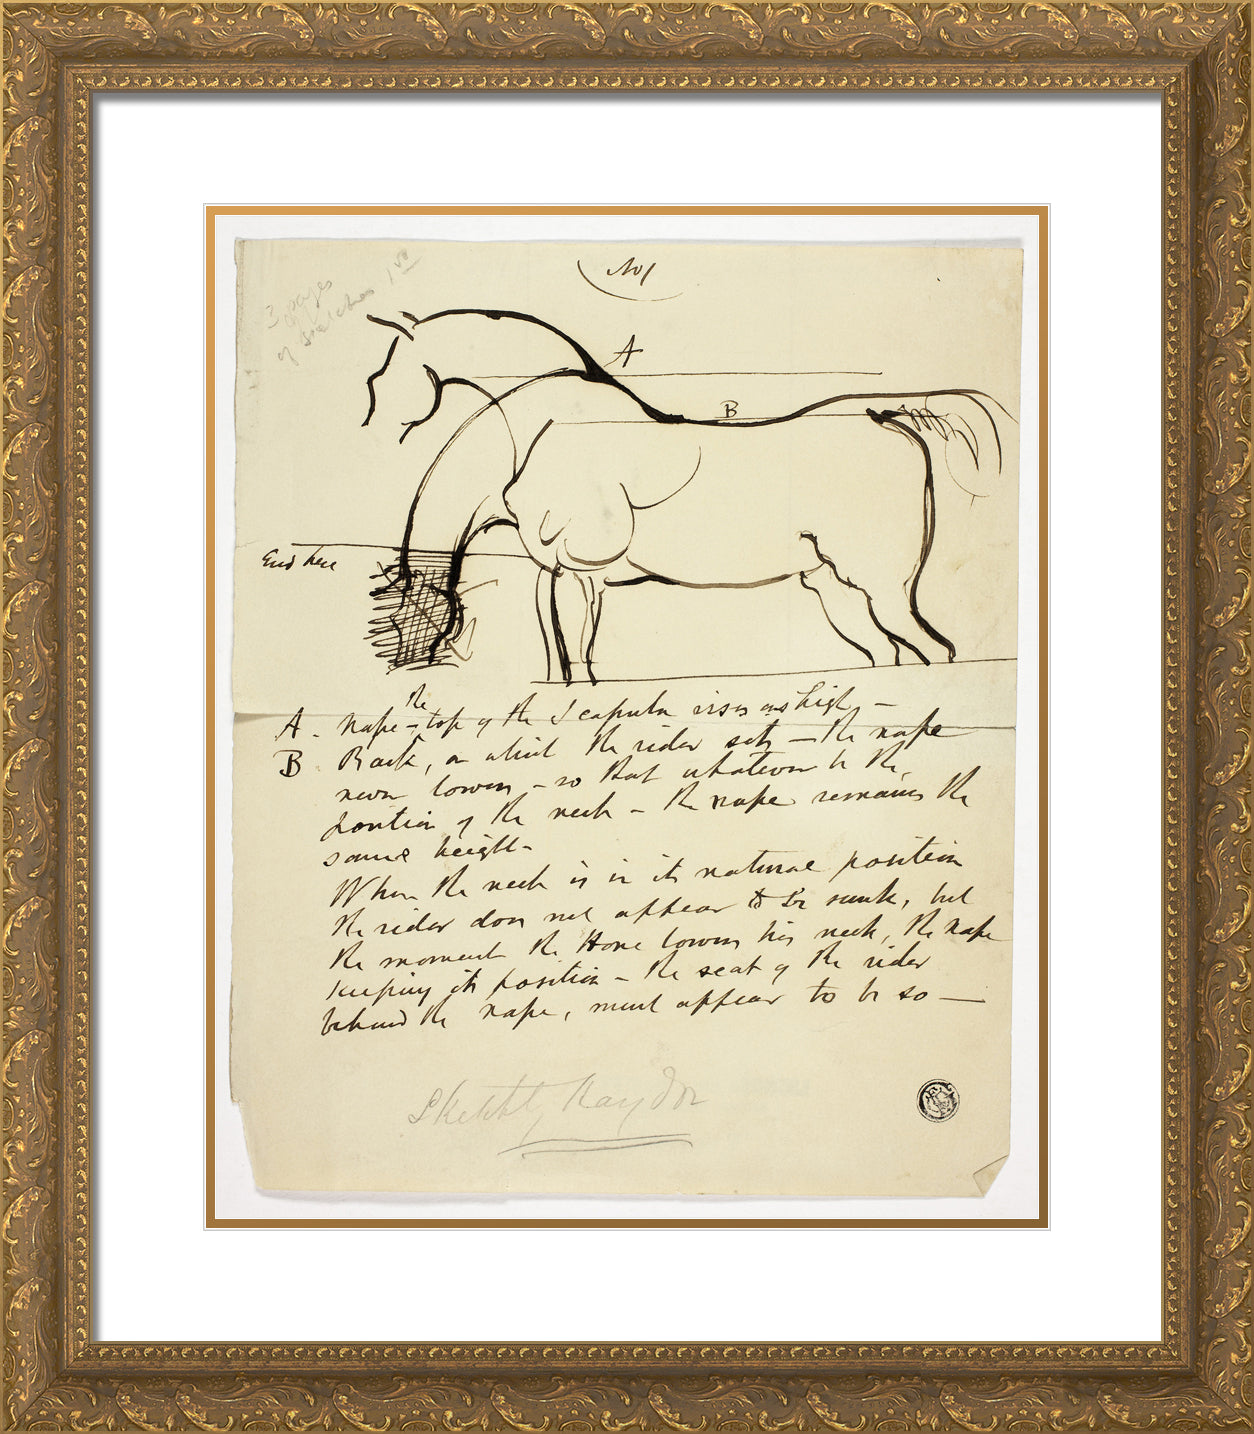 No 1
3 pages
of sketches 1 vo
A
B
End here
the
A. Nape - top of the Scapula rises as high -
B Back, on which the rider sits - the nape
never lowers - so that whatever be the
position of the neck - the nape remains the
same height -
When the neck is in its natural position
the rider does not appear to be sunk, but
the moment the Horse lowers his neck, the nape
keeping its position - the seat of the rider
behind the nape, must appear to be so -
Sketch by Haydon